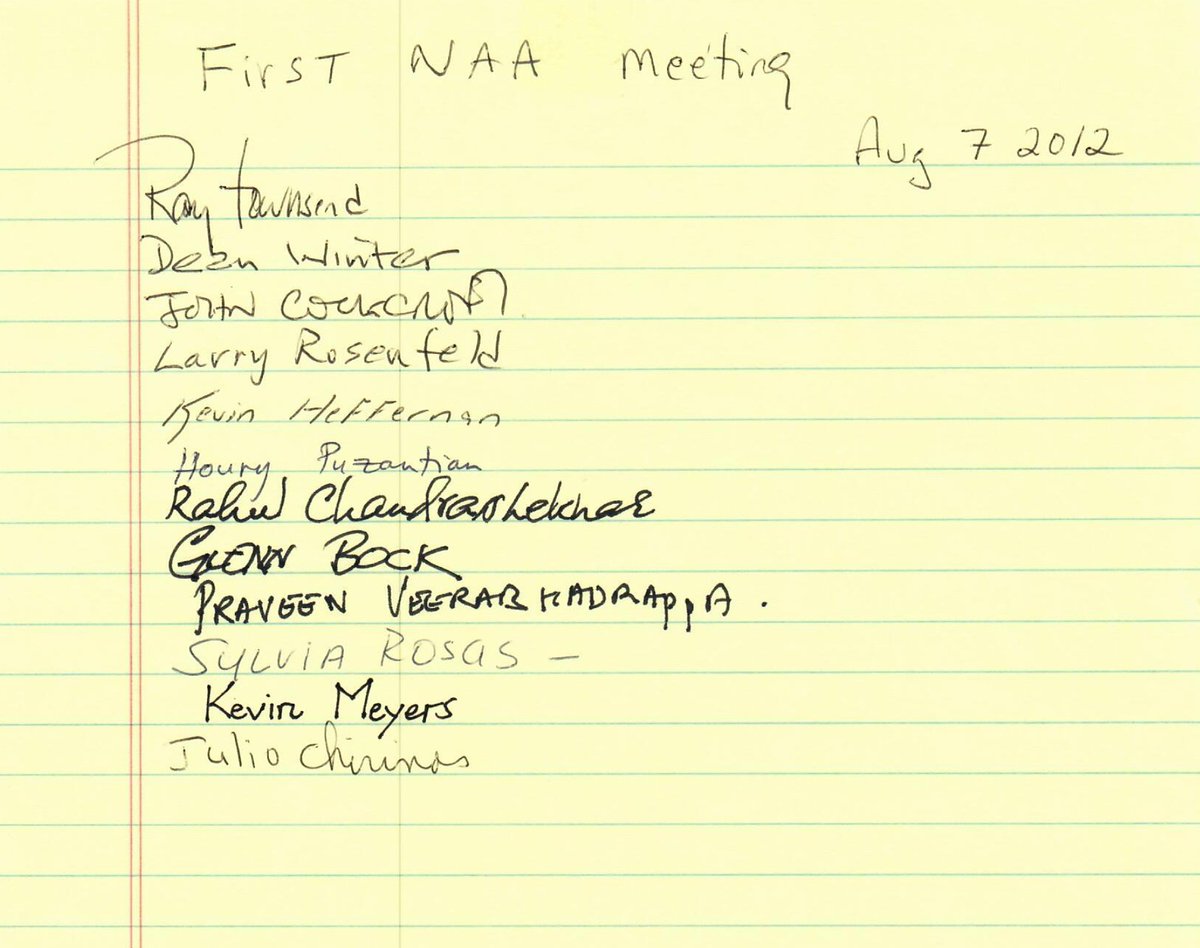 First NAA meeting
Aug 7 2012
Ray Townsend
Dean Winter
JOHN COCKCROFT
Larry Rosenfeld
Kevin Heffernan
Houry Puzantian
Rahul Chandrashekhar
GLENN BOCK
PRAVEEN VEERABHADRAppA.
SYLVIA ROSAS –
Kevin Meyers
Julio Chirinos